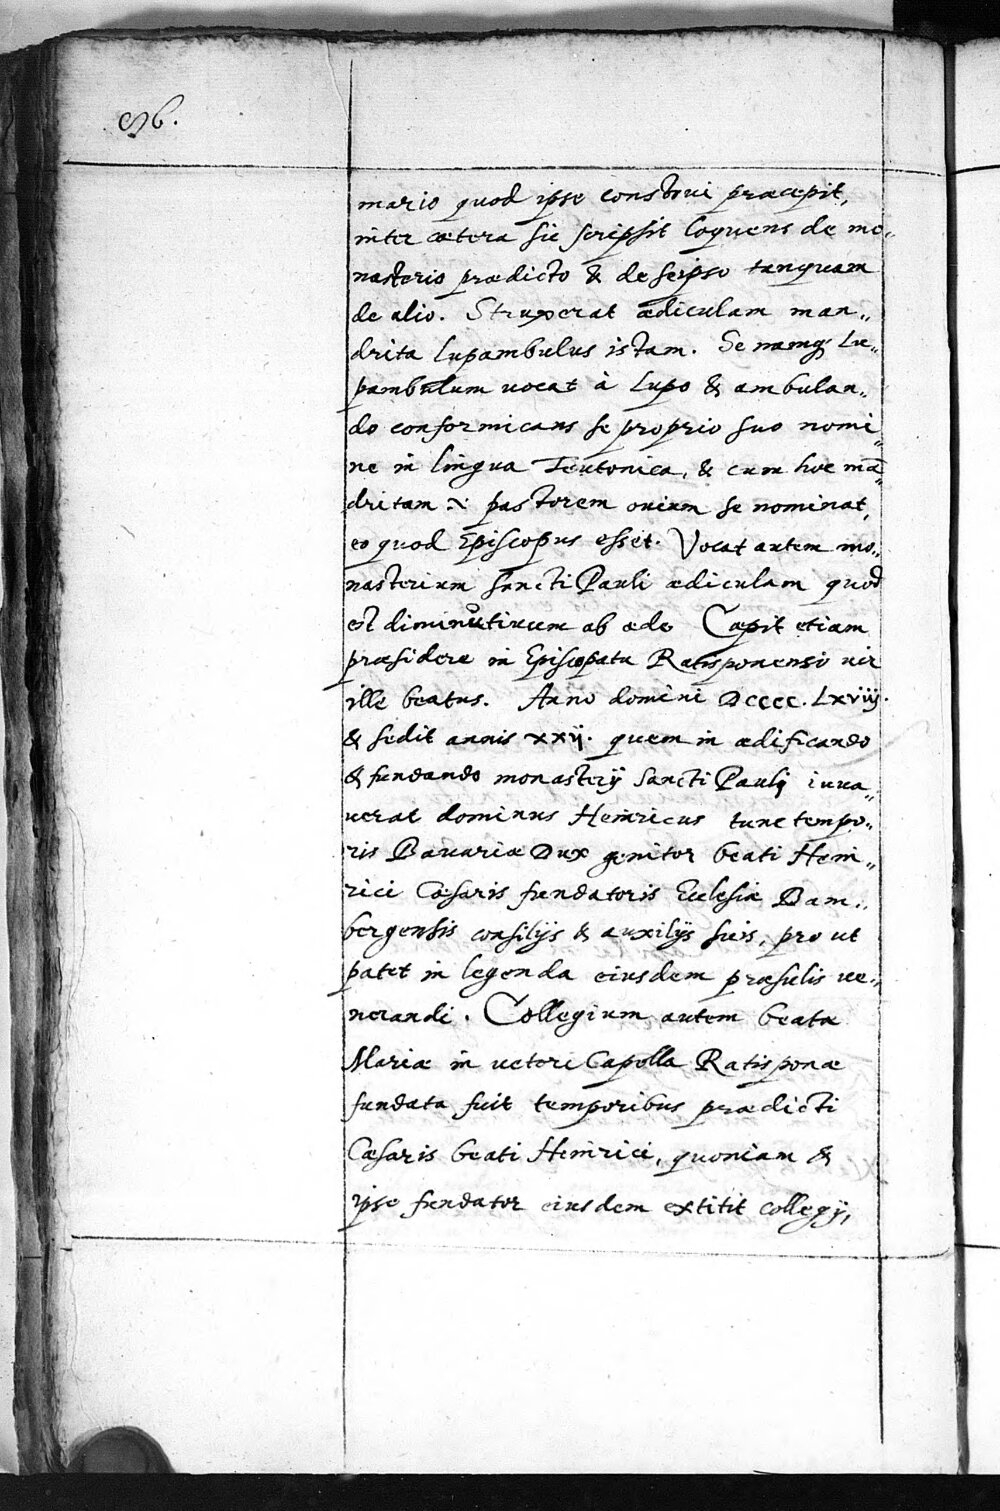 96.
mario quod ipse construi præcepit,
inter cætera sic scripsit loquens de mo„
nasterio prædicto & de seipso tanquam
de alio. Struxerat ædiculam man„
drita Lupambulus istam. Se namq Lu„
pambulum vocat à Lupo & ambulan„
do conformicans se proprio suo nomi„
ne in lingua Teutonica, & cum hoc mā„
dritam .i. pastorem ovium se nominat,
eo quod Episcopus esset. Vocat autem mo„
nasterium sancti Pauli ædiculam quod
est diminutivum ab æde Cœpit etiam
præsidere in Episcopatu Ratisponensi vir
ille beatus. Anno domini Dcccc. Lxviij.
& sedit annis xxij. quem in ædificando
& fundando monasterij sancti Pauli iuva„
verat dominus Heinricus tunc tempo„
ris Bavariæ Dux genitor beati Hein„
rici Cæsaris fundatoris Ecclesiæ Bam„
bergensis consilijs & auxilijs suis, pro ut
patet in legenda eiusdem præsulis ve„
nerandi. Collegium autem beatæ
Mariæ in veteri Capella Ratisponæ
fundata fuit temporibus prædicti
Cæsaris beati Heinrici, quoniam &
ipse fundator eiusdem extitit collegij,